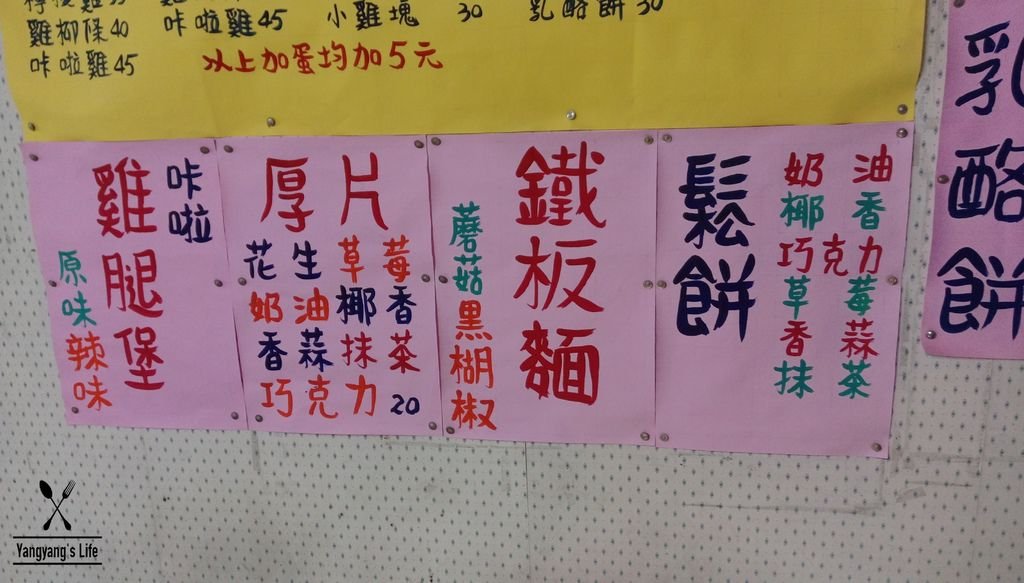 雞柳條40
咔啦雞45
咔啦雞45
小雞塊 30
乳酪餅30
以上加蛋均加5元
咔啦
雞腿堡
原味
辣味
厚片
花生 草莓
奶油 椰香
香蒜 抹茶
巧克力 20
鐵板麵
蘑菇
黑楜椒
鬆餅
奶油
椰香
巧克力
草莓
香蒜
抹茶
乳酪餅
Yangyang's Life